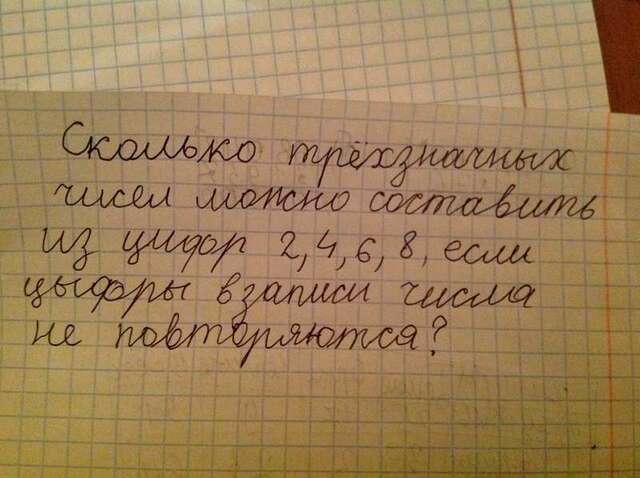 Сколько трёхзначных
чисел можно составить
из цифр 2, 4, 6, 8, если
цыфры в записи числа
не повторяются?